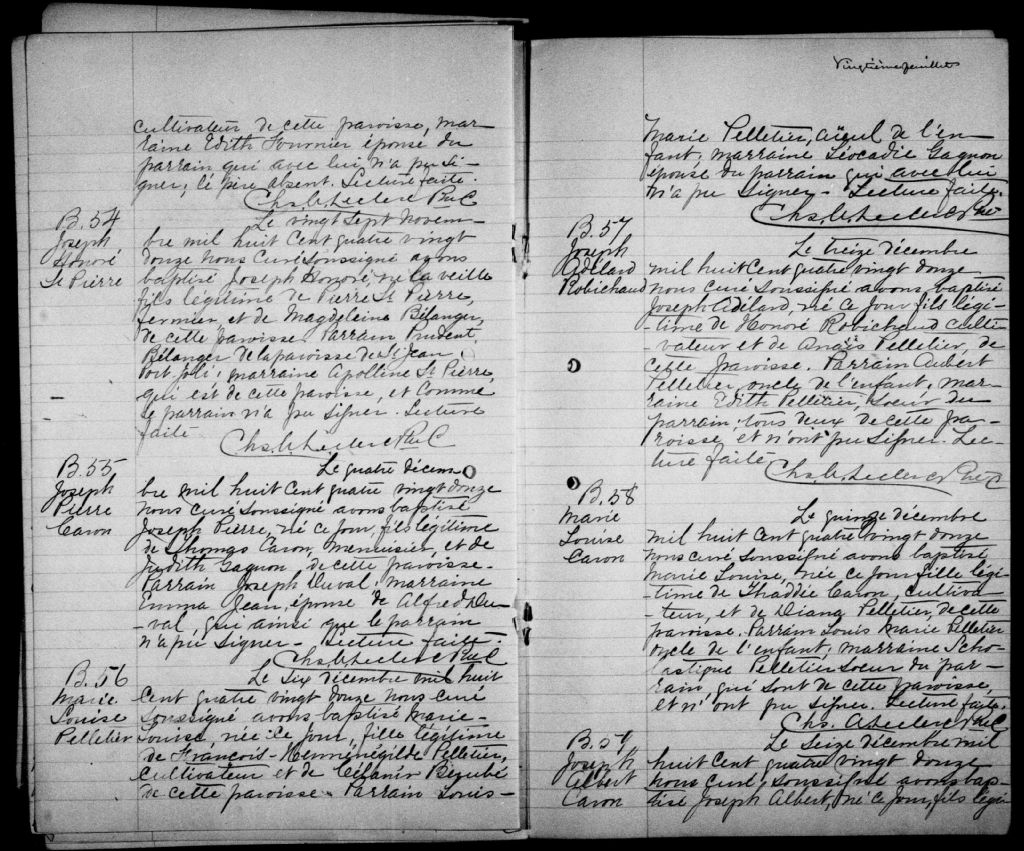 cultivateur de cette paroisse, mar-
raine Edith Fournier épouse du
parrain qui avec lui, n'a pu si-
gner; le père absent. Lecture faite.
Chs. A. Leclerc Ptre C
B. 54
Joseph
Honoré
St Pierre
Le vingt sept novem-
bre mil huit cent quatre vingt
douze nous curé soussigné avons
baptisé Joseph Honoré, né la veille
fils légitime de Pierre St Pierre,
fermier, et de Magdeleine Bélanger,
de cette paroisse. Parrain Prudent
Bélanger de la paroisse de St Jean
Port Joli; marraine Apolline St Pierre,
qui est de cette paroisse, et comme
le parrain n'a pu signer. Lecture
faite
Chs. A. Leclerc Ptre C
B. 55
Joseph
Pierre
Caron
Le quatre décem
bre mil huit cent quatre vingt douze
nous curé soussigné avons baptisé
Joseph Pierre, né ce jour, fils légitime
de Thomas Caron, menuisier, et de
Judith Gagnon de cette paroisse.
Parrain Joseph Duval; marraine
Emma Jean, épouse de Alfred Du-
val, qui ainsi que le parrain
n'a pu signer. Lecture faite.
Chs. A. Leclerc Ptre C
B. 56
Marie
Louise
Pelletier
Le six décembre mil huit
cent quatre vingt douze nous curé
soussigné avons baptisé Marie-
Louise née ce jour, fille légitime
de François-Herménégilde Pelletier,
cultivateur et de Célanir Bérubé
de cette paroisse. Parrain Louis-
Vingtième feuillet
Marie Pelletier, aïeul de l'en-
fant, marraine Léocadie Gagnon
épouse du parrain qui avec lui
n'a pu signer - Lecture faite.
Chs. A. Leclerc Ptre
B. 57
Joseph
Adélard
Robichaud
Le treize décembre
mil huit cent quatre vingt douze
nous curé soussigné avons baptisé
Joseph Adélard, né ce jour fils légi-
-time de Honoré Robichaud culti-
-vateur et de Anaïs Pelletier, de
cette paroisse. Parrain Aubert
Pelletier, oncle de l'enfant, mar-
raine Edith Pelletier, soeur du
parrain; tous deux de cette pa-
roisse, et n'ont pu signer. Lec-
ture faite
Chs. A. Leclerc Ptre C
B. 58
Marie
Louise
Caron
Le quinze décembre
mil huit cent quatre vingt douze
nous curé soussigné avons baptisé
Marie Louise, née ce jour fille légi-
-time de Thaddée Caron, cultiva-
-teur, et de Diana Pelletier, de cette
paroisse. Parrain Louis Marie Pelletier
oncle de l'enfant; marraine Scho-
lastique Pelletier soeur du par-
rain, qui sont de cette paroisse,
et n'ont pu signer. Lecture faite.
Chs. A Leclerc Ptre C
B. 59
Joseph
Albert
Caron
Le seize décembre mil
huit cent quatre vingt douze
nous curé soussigné avons bap-
tisé Joseph Albert, né ce jour, fils légi-